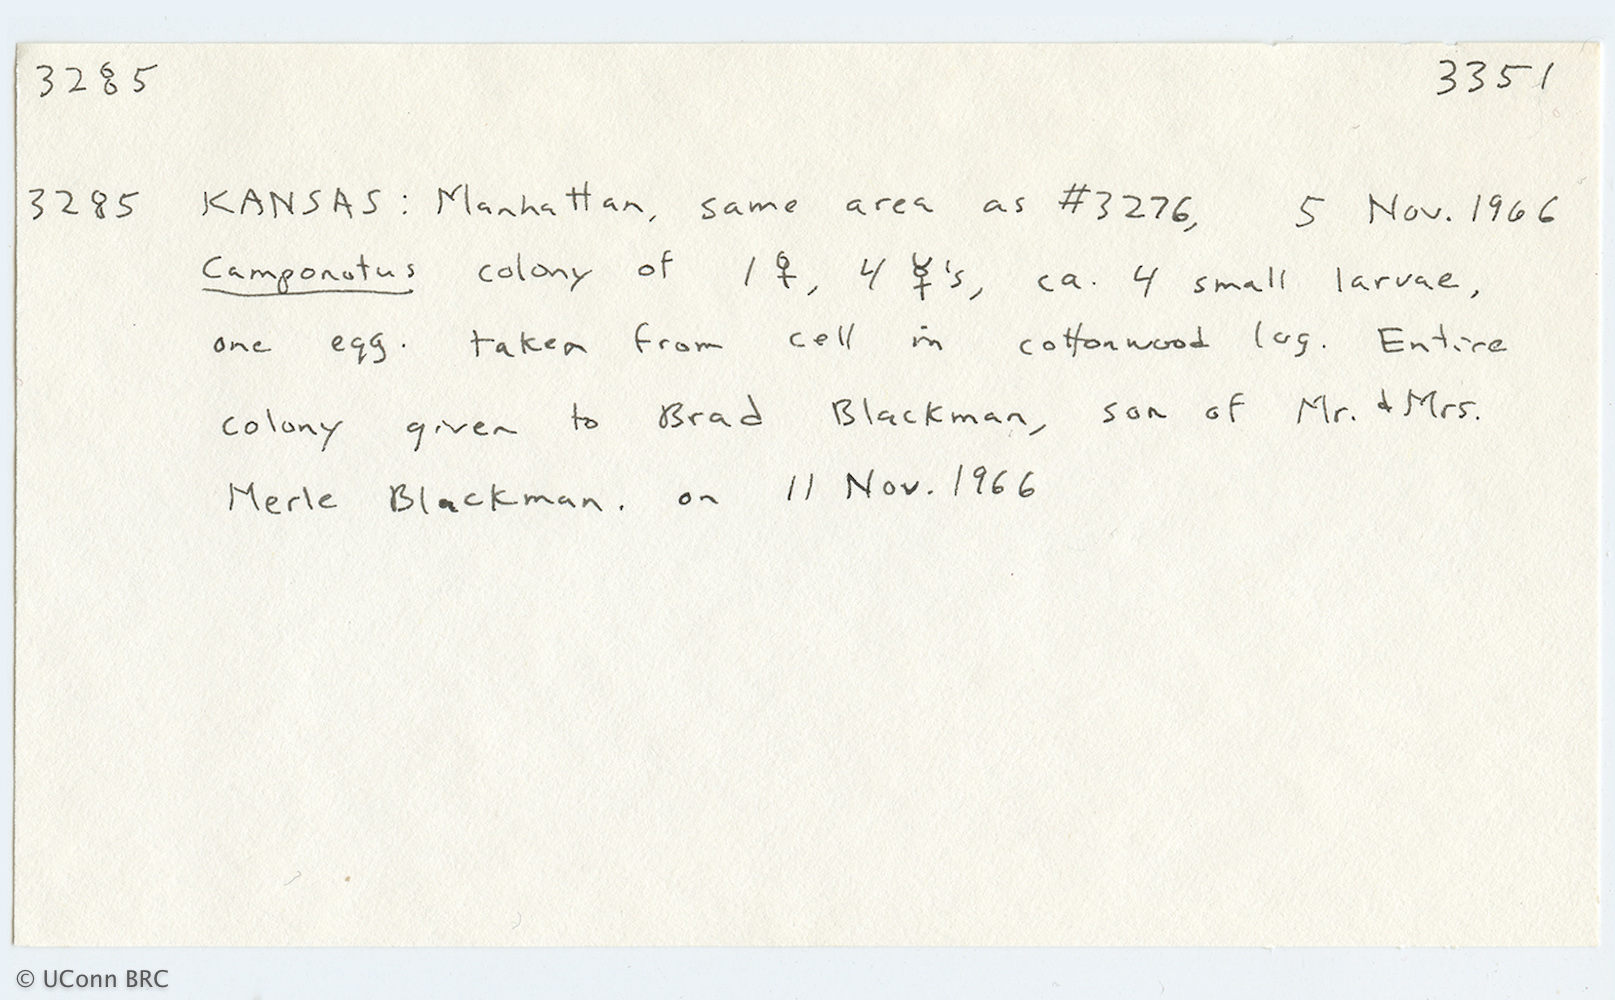 3285 3351
3285 KANSAS: Manhattan, same area as #3276, 5 Nov. 1966
Camponotus colony of 1 ♀, 4 ☿'s, ca. 4 small larvae,
one egg. taken from cell in cottonwood log. Entire
colony given to Brad Blackman, son of Mr. & Mrs.
Merle Blackman. on 11 Nov. 1966
© UConn BRC